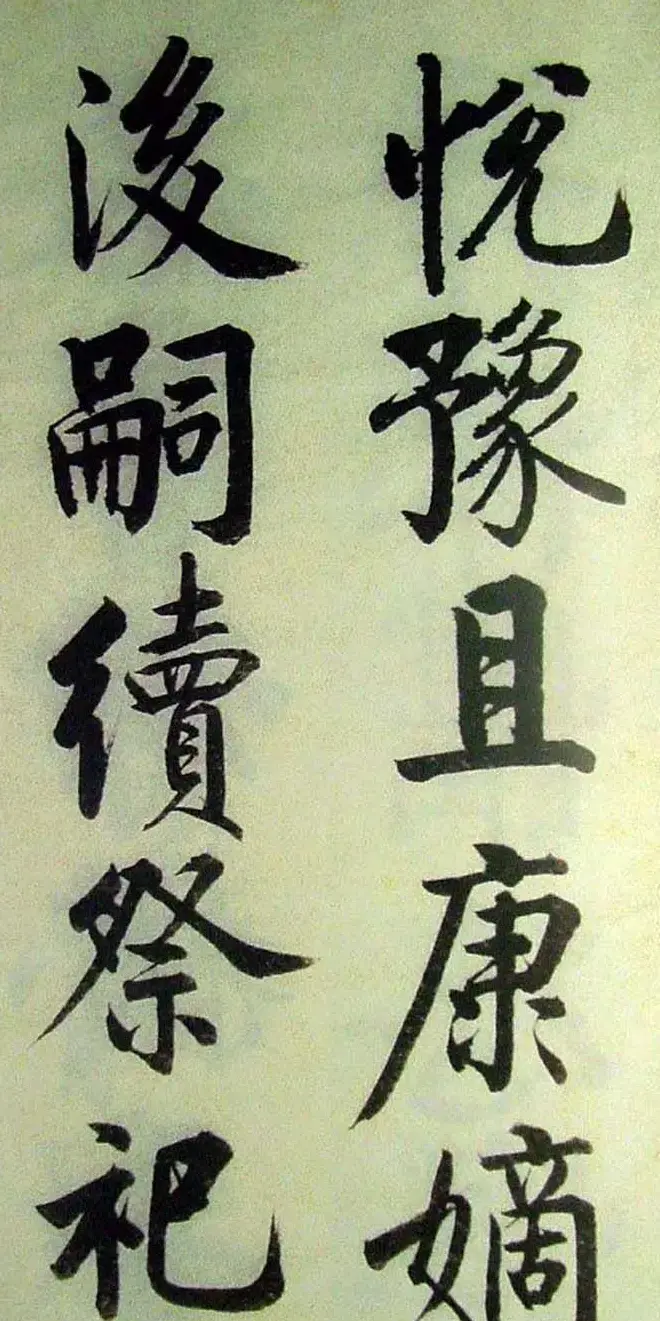 悦豫且康嫡
後嗣續祭祀